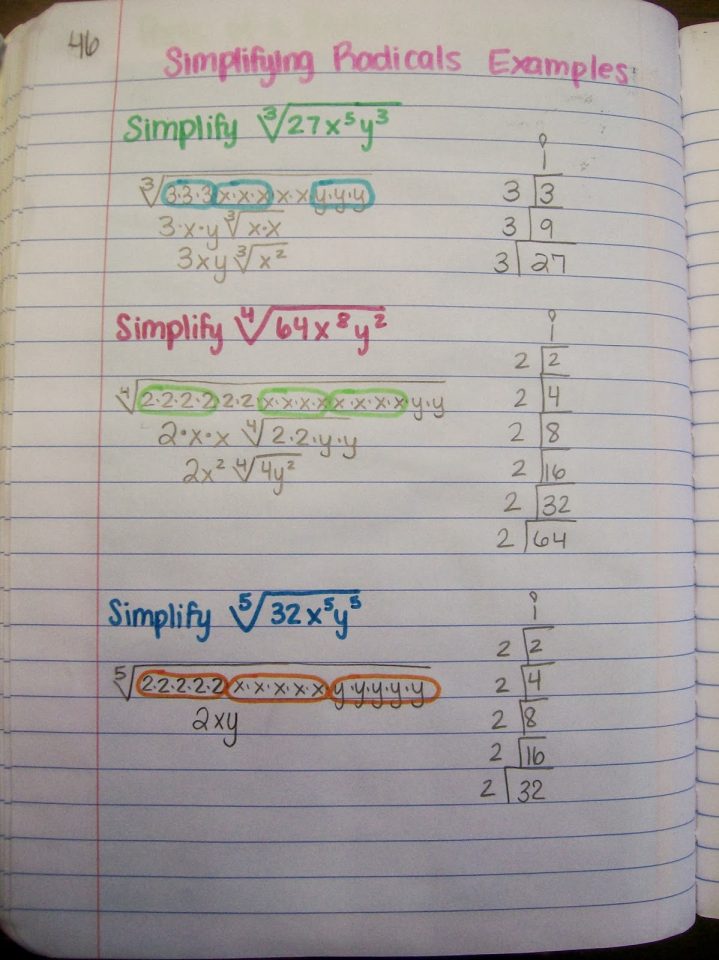 46
Simplifying Radicals Examples
Simplify ∛27x⁵y³
∛3·3·3 x·x·x x·x y·y·y
3·x·y ∛x·x
3xy ∛x²
1
3 3
3 9
3 27
Simplify ∜64x⁸y²
∜2·2·2·2 2·2 x·x·x·x x·x·x·x y·y
2·x·x ∜2·2·y·y
2x² ∜4y²
1
2 2
2 4
2 8
2 16
2 32
2 64
Simplify ⁵√32x⁵y⁵
⁵√2·2·2·2·2 x·x·x·x·x y·y·y·y·y
2xy
1
2 2
2 4
2 8
2 16
2 32